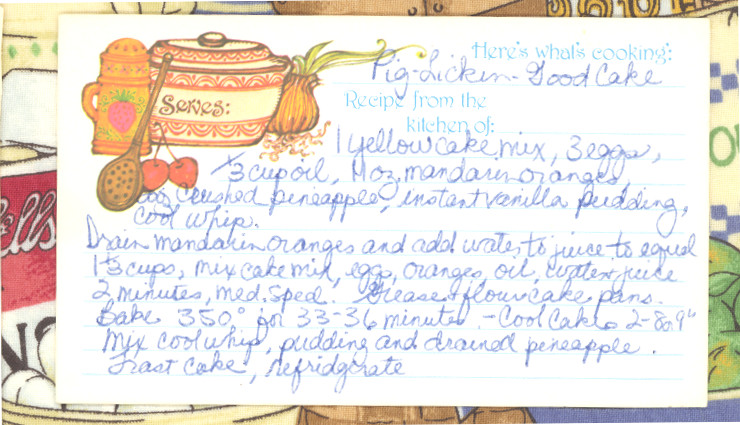 Here's what's cooking:
Pig-Lickin-Good Cake
Serves:
Recipe from the
kitchen of:
1 yellow cake mix, 3 eggs,
1/3 cup oil, 11 oz. mandarin oranges,
crushed pineapple, instant vanilla pudding,
cool whip.
Drain mandarin oranges and add water to juice to equal
1 1/3 cups, mix cake mix, eggs, oranges, oil, water juice
2 minutes, med. sped. Grease + flour cake pans.
Bake 350° for 33-36 minutes - Cool Cakes 2-8 or 9"
Mix cool whip, pudding and drained pineapple.
Frast Cake, Refridgerate